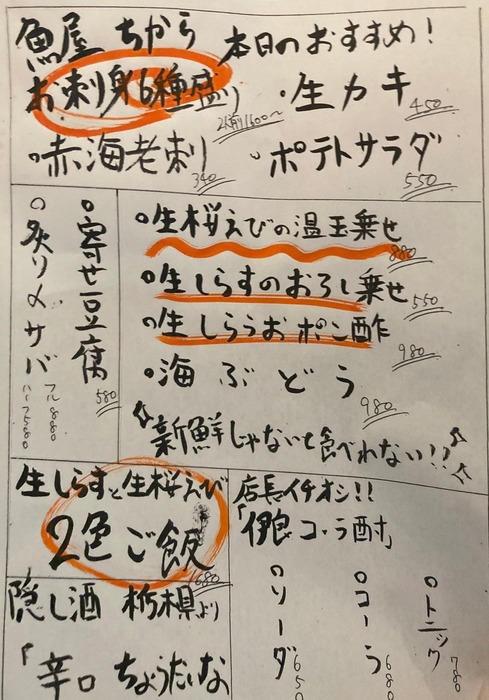 魚屋 ちから 本日のおすすめ!
お刺身6種盛り 2人前1600〜
・生カキ 450
・赤海老刺り 340
・ポテトサラダ 550
・寄せ豆腐 580
・炙り〆サバ
フル880
ハーフ580
・生桜えびの温玉乗せ 880
・生しらすのおろし乗せ 550
・生しらうおポン酢 980
・海ぶどう 980
新鮮じゃないと食べれない!!
生しらすと生桜えび
2色ご飯 1680
店長イチオシ!!
「伊良コーラ酎」
・ソーダ 650
・コーラ 680
・トニック 780
隠し酒 栃木県より
「辛口 ちょうたいな